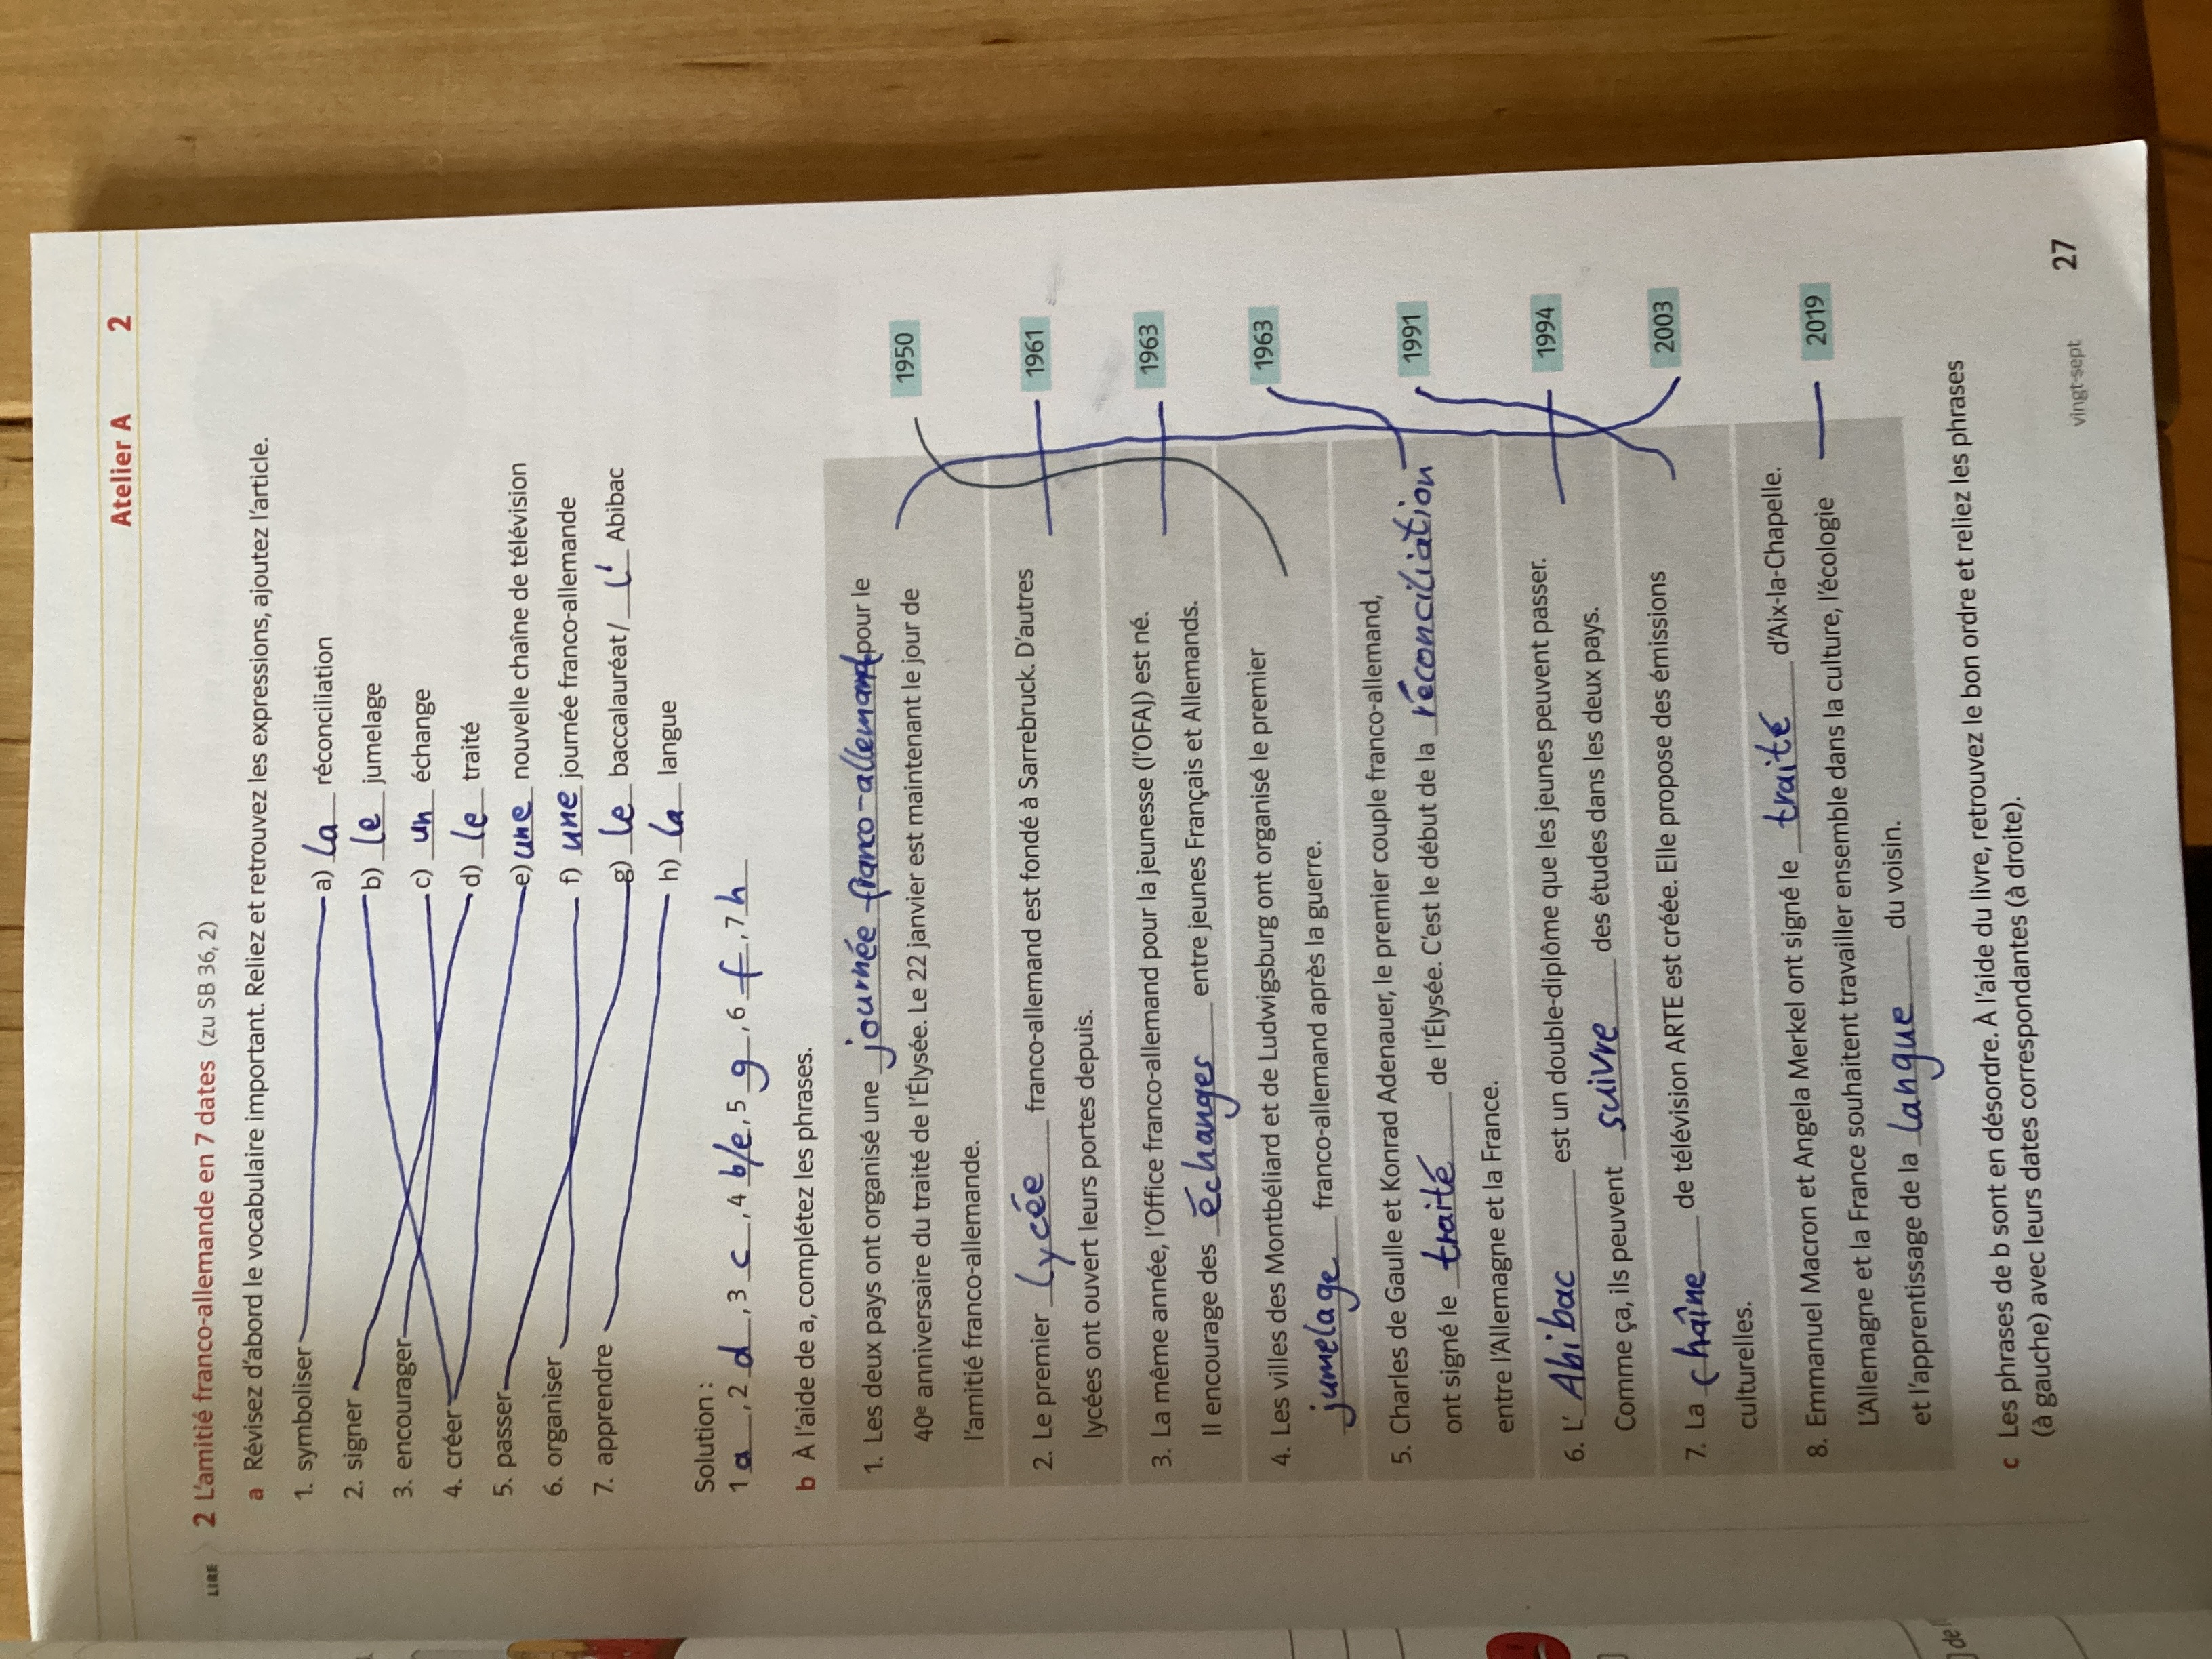 Atelier A 2
LIRE 2 L'amitié franco-allemande en 7 dates (zu SB 36, 2)
a Révisez d'abord le vocabulaire important. Reliez et retrouvez les expressions, ajoutez l'article.
1. symboliser a) la réconciliation
2. signer b) le jumelage
3. encourager c) un échange
4. créer d) le traité
5. passer e) une nouvelle chaîne de télévision
6. organiser f) une journée franco-allemande
7. apprendre g) le baccalauréat / l' Abibac
h) la langue
Solution :
1 a, 2 d, 3 c, 4 b/e, 5 g, 6 f, 7 h
b À l'aide de a, complétez les phrases.
1. Les deux pays ont organisé une journée franco-allemand pour le
40e anniversaire du traité de l'Élysée. Le 22 janvier est maintenant le jour de
l'amitié franco-allemande.
1950
2. Le premier lycée franco-allemand est fondé à Sarrebruck. D'autres
lycées ont ouvert leurs portes depuis.
1961
3. La même année, l'Office franco-allemand pour la jeunesse (l'OFAJ) est né.
Il encourage des échanges entre jeunes Français et Allemands.
1963
4. Les villes des Montbéliard et de Ludwigsburg ont organisé le premier
jumelage franco-allemand après la guerre.
1963
5. Charles de Gaulle et Konrad Adenauer, le premier couple franco-allemand,
ont signé le traité de l'Élysée. C'est le début de la réconciliation
entre l'Allemagne et la France.
1991
6. L' Abibac est un double-diplôme que les jeunes peuvent passer.
Comme ça, ils peuvent suivre des études dans les deux pays.
1994
7. La chaîne de télévision ARTE est créée. Elle propose des émissions
culturelles.
2003
8. Emmanuel Macron et Angela Merkel ont signé le traité d'Aix-la-Chapelle.
L'Allemagne et la France souhaitent travailler ensemble dans la culture, l'écologie
et l'apprentissage de la langue du voisin.
2019
c Les phrases de b sont en désordre. À l'aide du livre, retrouvez le bon ordre et reliez les phrases
(à gauche) avec leurs dates correspondantes (à droite).
vingt-sept 27
de